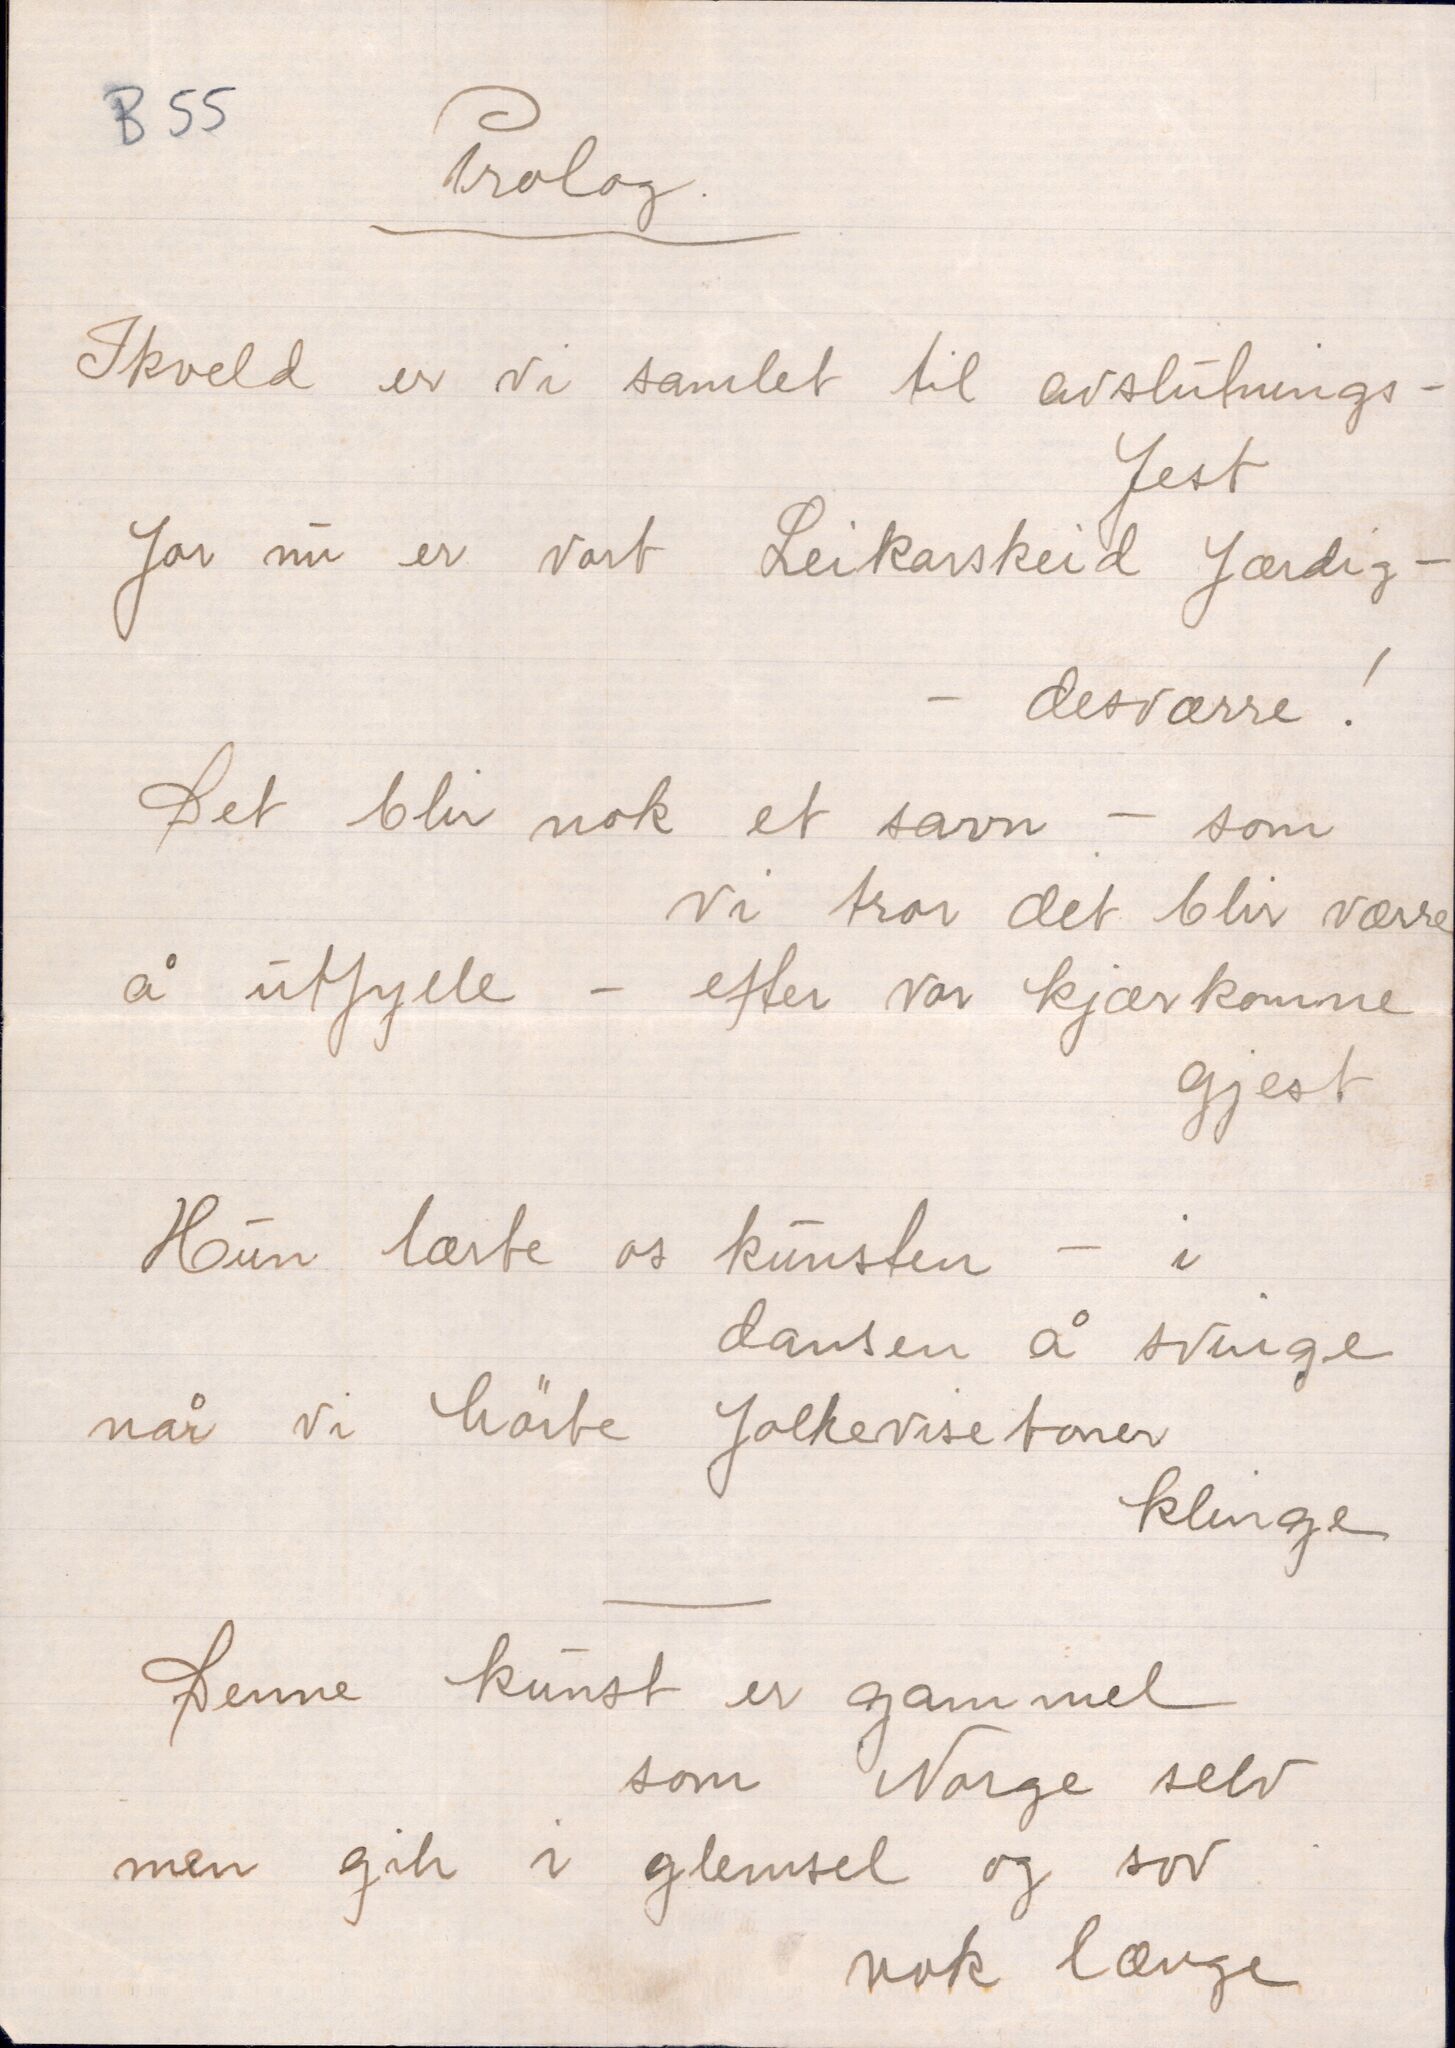 B 55
Prolog.
Ikveld er vi samlet til avslutnings-
fest
for nu er vort Leikarskeid færdig -
- desværre!
Det blir nok et savn - som
vi tror det blir værre
å utfylle - efter vor kjærkomne
gjest
Hun lærte os kunsten - i
dansen å svinge
når vi hörte folkevisetoner
klinge
Denne kunst er gammel
som Norge selv
men gik i glemsel og sov
nok længe